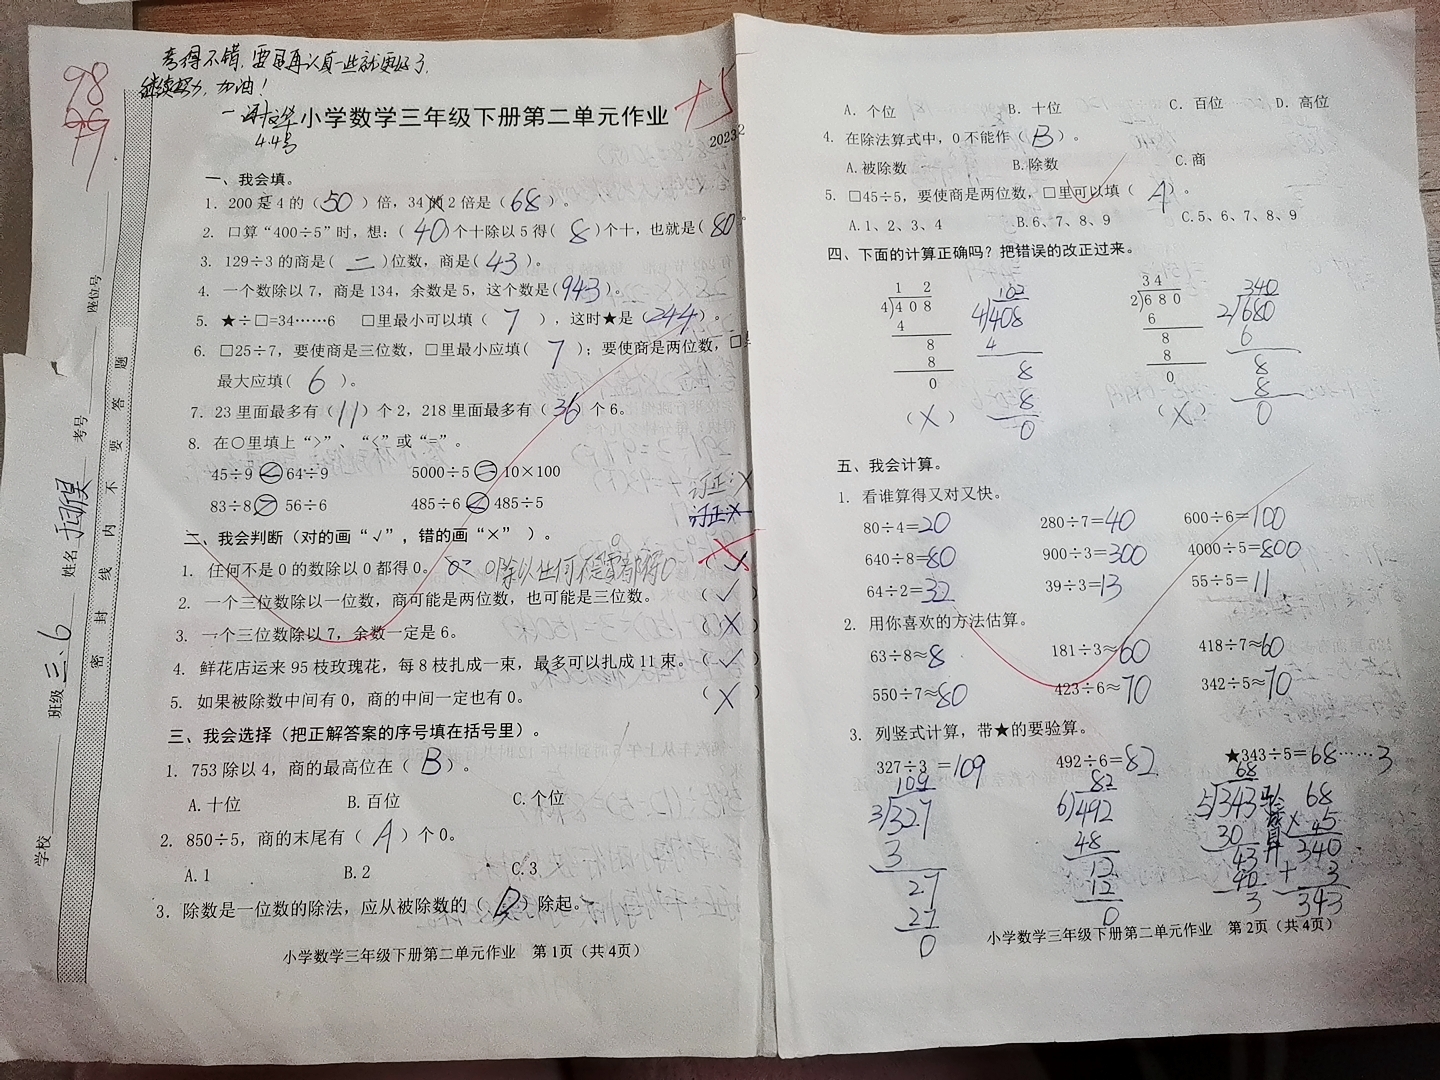 考得不错，要是再认真一些就更好了，
继续努力，加油！
44号
98
99
+5
小学数学三年级下册第二单元作业
20232
学校 班级 三、6 姓名 考号 座位号
密 封 线 内 不 要 答 题
一、我会填。
1. 200是4的（50）倍，34的2倍是（68）。
2. 口算“400÷5”时，想：（40）个十除以5得（8）个十，也就是（80
3. 129÷3的商是（二）位数，商是（43）。
4. 一个数除以7，商是134，余数是5，这个数是（943）。
5. ★÷□=34……6 □里最小可以填（7），这时★是（244）。
6. □25÷7，要使商是三位数，□里最小应填（7）；要使商是两位数，□里
最大应填（6）。
7. 23里面最多有（11）个2，218里面最多有（36）个6。
8. 在○里填上“>”、“<”或“=”。
45÷9 < 64÷9 5000÷5 = 10×100
83÷8 > 56÷6 485÷6 < 485÷5
订正：×
订正：×
二、我会判断（对的画“√”，错的画“×” ）。
1. 任何不是0的数除以0都得0。 （√
2. 一个三位数除以一位数，商可能是两位数，也可能是三位数。（√）
3. 一个三位数除以7，余数一定是6。（×）
4. 鲜花店运来95枝玫瑰花，每8枝扎成一束，最多可以扎成11束。（√）
5. 如果被除数中间有0，商的中间一定也有0。（×）
三、我会选择（把正解答案的序号填在括号里）。
1. 753除以4，商的最高位在（B）。
A. 十位 B. 百位 C. 个位
2. 850÷5，商的末尾有（A）个0。
A. 1 B. 2 C. 3
3. 除数是一位数的除法，应从被除数的（D）除起。
小学数学三年级下册第二单元作业 第1页（共4页）
A. 个位 B. 十位 C. 百位 D. 高位
4. 在除法算式中，0不能作（B）。
A. 被除数 B. 除数 C. 商
5. □45÷5，要使商是两位数，□里可以填（A）。
A. 1、2、3、4 B. 6、7、8、9 C. 5、6、7、8、9
四、下面的计算正确吗？把错误的改正过来。
1 2 102 34 340
4)408 4)408 2)680 2)680
4 4 6 6
8 8 8 8
8 8 8 8
0 0 0 0
（×） （×）
五、我会计算。
1. 看谁算得又对又快。
80÷4=20 280÷7=40 600÷6=100
640÷8=80 900÷3=300 4000÷5=800
64÷2=32 39÷3=13 55÷5=11
2. 用你喜欢的方法估算。
63÷8≈8 181÷3≈60 418÷7≈60
550÷7≈80 423÷6≈70 342÷5≈70
3. 列竖式计算，带★的要验算。
327÷3=109 492÷6=82 ★343÷5=68……3
109 82 68
3)327 6)492 5)343 验算 68
3 48 30 ×5
27 12 43 340
27 12 40 + 3
0 0 3 343
小学数学三年级下册第二单元作业 第2页（共4页）